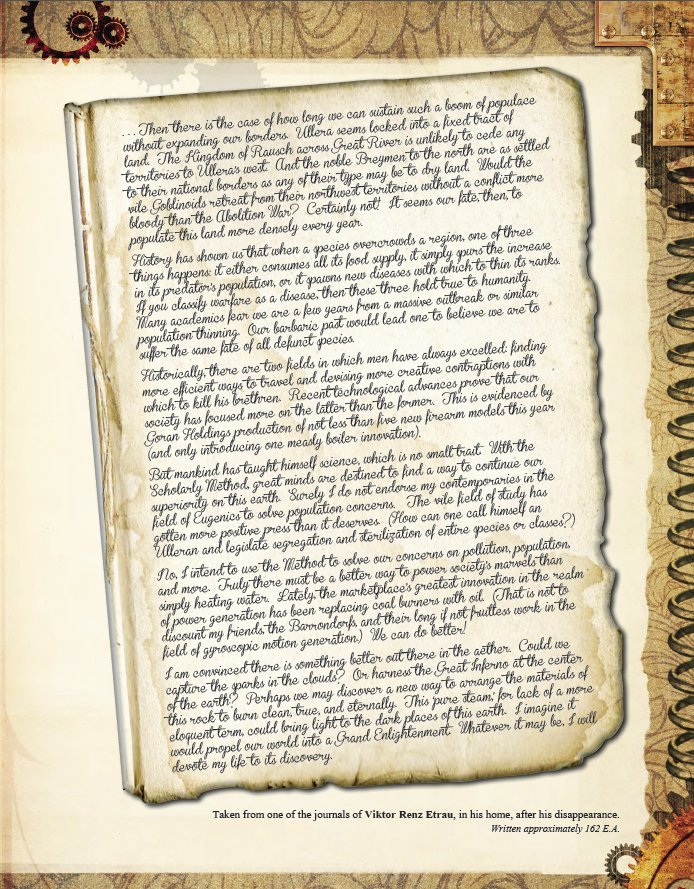 . . . Then there is the case of how long we can sustain such a boom of populace
without expanding our borders. Ullera seems locked into a fixed tract of
land. The Kingdom of Rausch across Great River is unlikely to cede any
territories to Ullera's west. And the noble Breymen to the north are as settled
to their national borders as any of their type may be to dry land. Would the
vile Goblinoids retreat from their northwest territories without a conflict more
bloody than the Abolition War? Certainly not! It seems our fate, then, to
populate this land more densely every year.
History has shown us that when a species overcrowds a region, one of three
things happens: it either consumes all its food supply, it simply spurs the increase
in its predator's population, or it spawns new diseases with which to thin its ranks.
If you classify warfare as a disease, then these three hold true to humanity.
Many academics fear we are a few years from a massive outbreak or similar
population-thinning. Our barbaric past would lead one to believe we are to
suffer the same fate of all defunct species.
Historically, there are two fields in which men have always excelled: finding
more efficient ways to travel and devising more creative contraptions with
which to kill his brethren. Recent technological advances prove that our
society has focused more on the latter than the former. This is evidenced by
Goran Holdings production of not less than five new firearm models this year
(and only introducing one measly boiler innovation).
But mankind has taught himself science, which is no small trait. With the
Scholarly Method, great minds are destined to find a way to continue our
superiority on this earth. Surely I do not endorse my contemporaries in the
field of Eugenics to solve population concerns. The vile field of study has
gotten more positive press than it deserves. (How can one call himself an
Ulleran and legislate segregation and sterilization of entire species or classes?)
No, I intend to use the Method to solve our concerns on pollution, population,
and more. Truly there must be a better way to power society's marvels than
simply heating water. Lately, the marketplace's greatest innovation in the realm
of power generation has been replacing coal burners with oil. (That is not to
discount my friends, the Barrondorfs, and their long if not fruitless work in the
field of gyroscopic motion generation.) We can do better!
I am convinced there is something better out there in the aether. Could we
capture the sparks in the clouds? Or harness the Great Inferno at the center
of the earth? Perhaps we may discover a new way to arrange the materials of
this rock to burn clean, true, and eternally. This 'pure steam,' for lack of a more
eloquent term, could bring light to the dark places of this earth. I imagine it
would propel our world into a Grand Enlightenment. Whatever it may be, I will
devote my life to its discovery.
Taken from one of the journals of Viktor Renz Etrau, in his home, after his disappearance.
Written approximately 162 E.A.